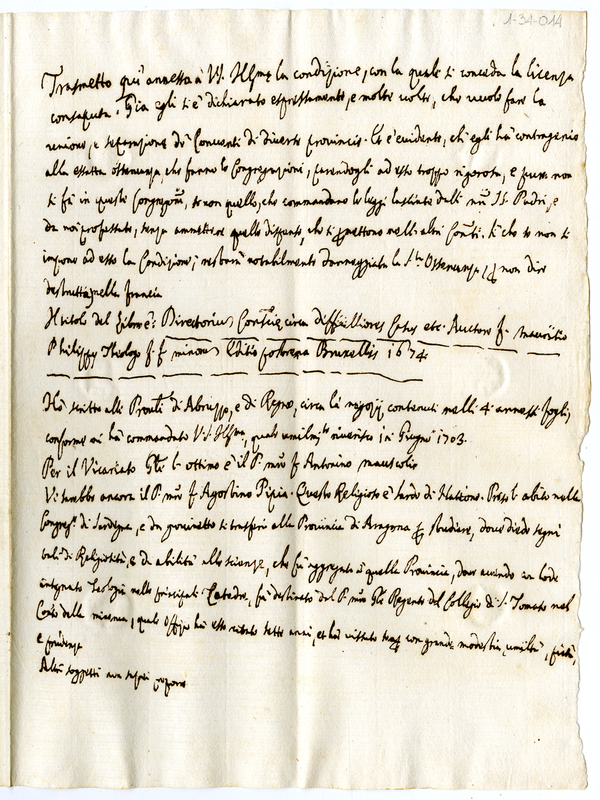 1-34-014
Trasmetto quì annessa à V. S. Illma la condizione, con la quale si conceda la licenza
consaputa. Già egli si è dichiarato espressamente, e molte volte, che vuole fare la
unione, e separazione di Conventi di diverse provincie. Et è evidente, ch'egli hà contragenio
alla esatta osservanza, che fanno le Congregazioni, parendogli ad esso troppo rigorosa, e pure non
si fà in queste Congregni, se non quello, che commandano le leggi lasciate dalli nri SS. Padri, e
da noi professate, senza ammettere quelle dispense, che si permettono nelli altri Conti. Si che se non si
impone ad esso la Condizione, restarà notabilmente danneggiata la Sta Osservanza, per non dire
destrutta nella Francia
Il titolo del libro è: Directorium Conscie circa difficiliores Casus etc. Auctore f. Mauritio
Philippi Theologo f. f. minorum Editio postrema Bruxellis 1674
Hò scritto alli Pronli di Abruzzo, e di Regno, circa li negozij contenuti nelli 4 annessi fogli,
conforme mi hà commandato V. S. Illma, quale umilmte riverisco in Giugno 1703.
Per il Vicariato Gle l'ottimo è il P. mro f. Antonino
Vi sarebbe ancora il P. mro f. Agostino Pipia. Questo Religioso è sardo di Nazione. Prese l'abito nella
Congregne di Sardegna, e da giovinetto si trasferì alla Provincia di Aragona per studiare, dove diede segni
tali di Religiosità, e di abilità alle scienze, che fù aggregato à quella Provincia, dove avendo con lode
insegnato Teologia nelle principali Catedre, fù destinato dal P. mro Gle Regente del Collegio di S. Tomaso nel
Conto della minerva, quale offizio hà esercitato sette anni, et hà vissuto sempre con grande modestia, umiltà, pietà,
e prudenza
Altri soggetti non saprei proporre